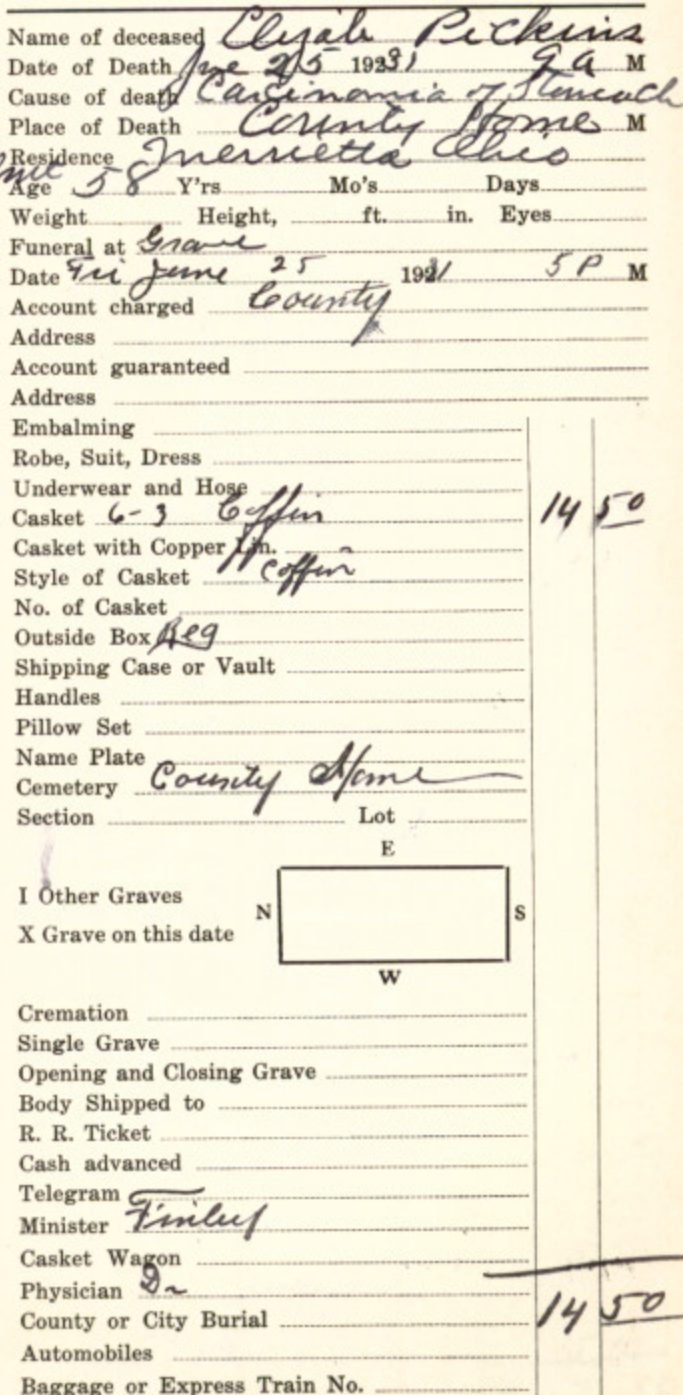 Name of deceased Elijah Pickins
Date of Death June 25 1931 9 A M
Cause of death Carcinomia of Stomach
Place of Death County Home M
Residence Merrietta Ohio
Age 58 Y'rs Mo's Days
Weight Height, ft. in. Eyes
Funeral at Grave
Date Fri June 25 1931 5 P M
Account charged County
Address
Account guaranteed
Address
Embalming
Robe, Suit, Dress
Underwear and Hose
Casket 6-3 Coffin 14 50
Casket with Copper Lin.
Style of Casket Coffin
No. of Casket
Outside Box Reg
Shipping Case or Vault
Handles
Pillow Set
Name Plate
Cemetery County Home
Section Lot
E
I Other Graves
N S
X Grave on this date
W
Cremation
Single Grave
Opening and Closing Grave
Body Shipped to
R. R. Ticket
Cash advanced
Telegram
Minister Finley
Casket Wagon
Physician Dr
County or City Burial 14 50
Automobiles
Baggage or Express Train No.